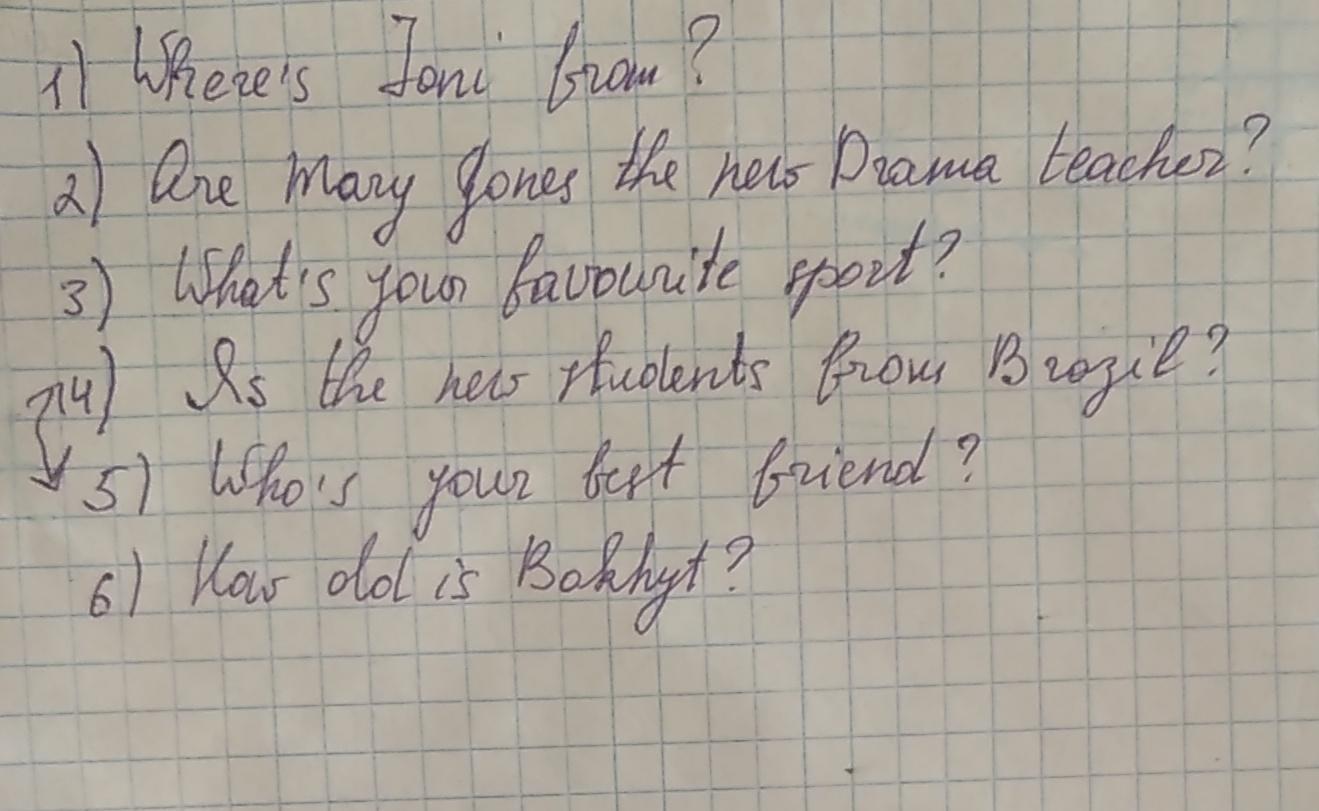 1) Where's Toni from?
2) Are Mary Jones the new Drama teacher?
3) What's your favourite sport?
4) Is the new students from Brazil?
5) Who's your best friend?
6) How old is Bakhyt?